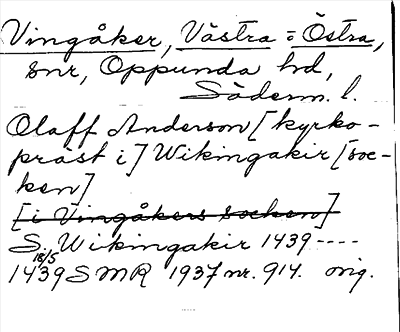 Vingåker, Västra o Östra,
snr, Oppunda hd,
Söderm. l.
Olaff Anderson [kyrko-
präst i] Wikingakir [soc-
ken]
[i Vingåkers socken]
S. Wikingakir 1439 ----
18/5
1439 SMR 1937 nr. 914. orig.